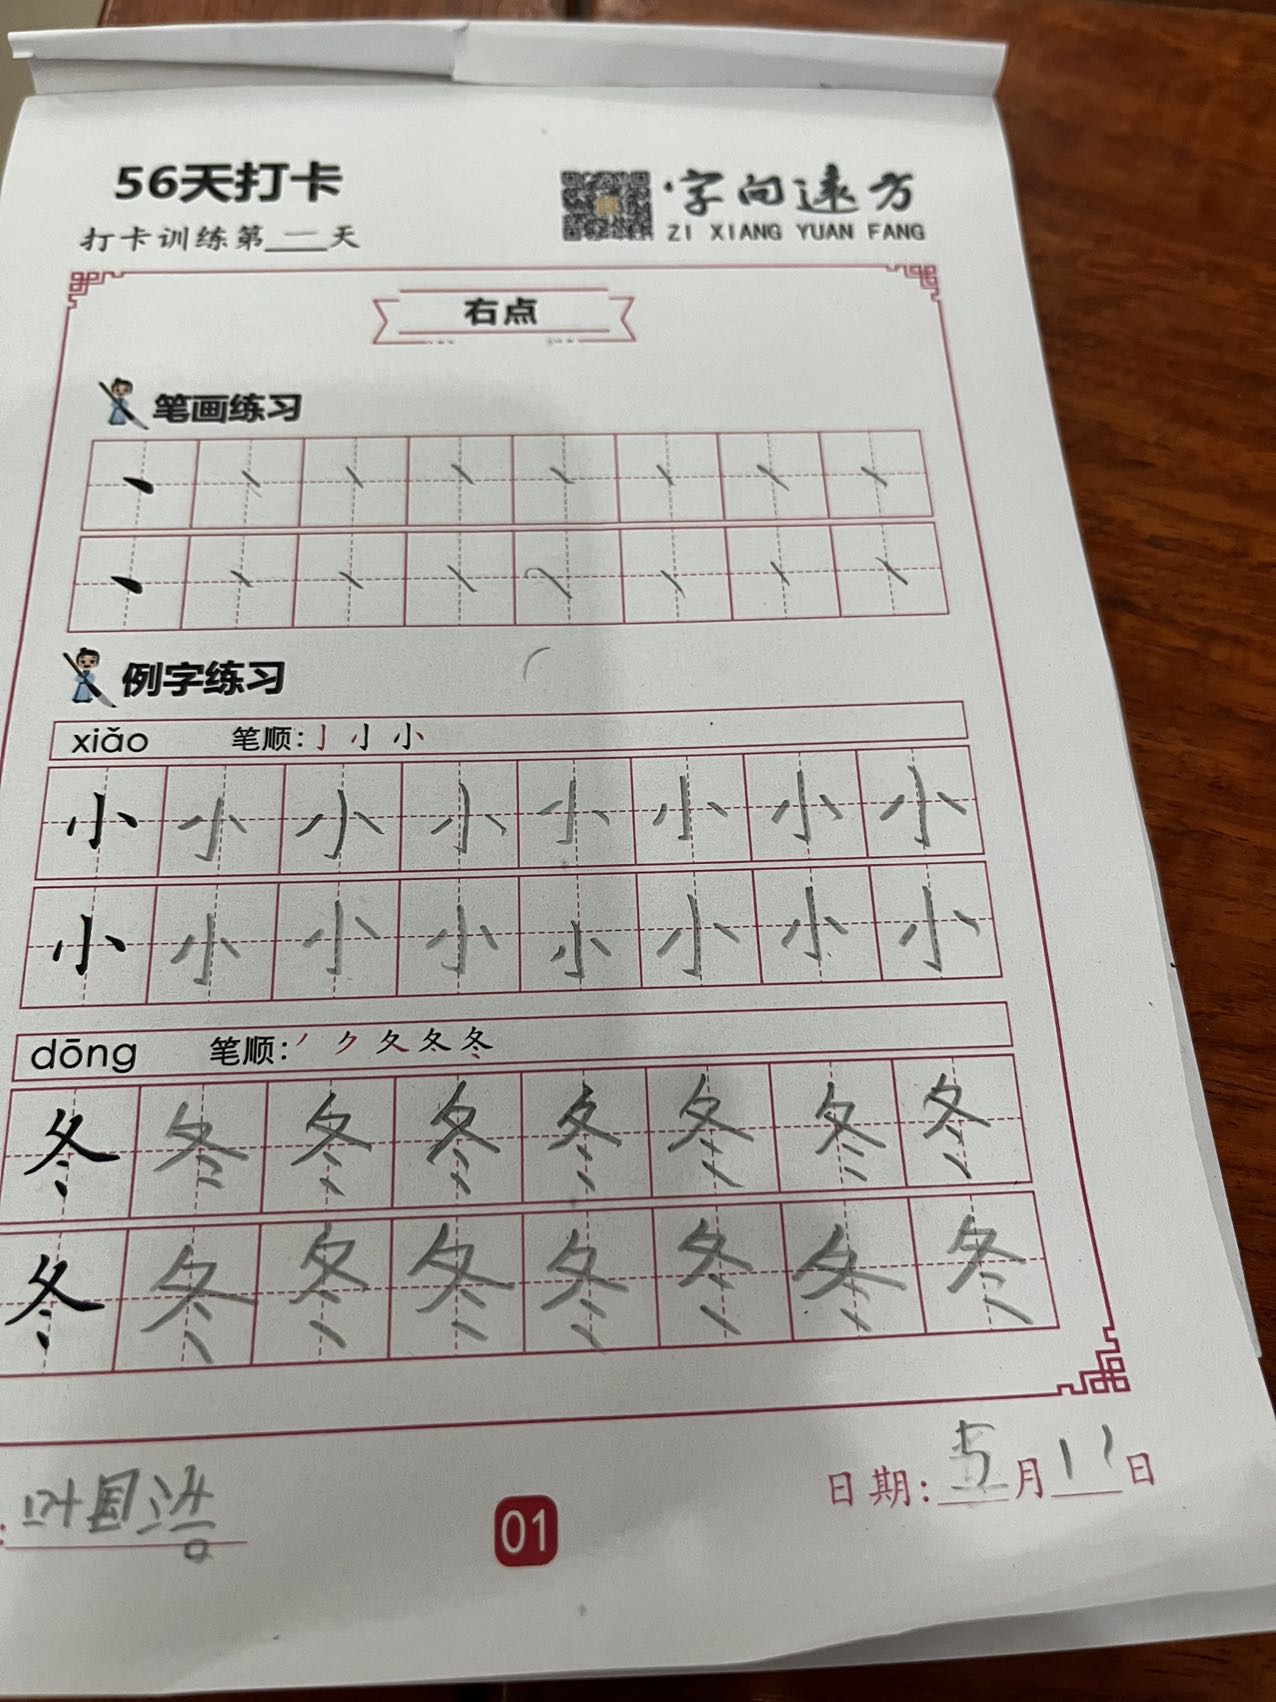 56天打卡
字向远方
打卡训练第一天
ZI XIANG YUAN FANG
右点
笔画练习
丶 丶 丶 丶 丶 丶 丶 丶
丶 丶 丶 丶 丶 丶 丶 丶
例字练习
xiǎo 笔顺: 亅 小 小
小 小 小 小 小 小 小 小
小 小 小 小 小 小 小 小
dōng 笔顺: 丿 ク 夂 冬 冬
冬 冬 冬 冬 冬 冬 冬 冬
冬 冬 冬 冬 冬 冬 冬 冬
日期: 5月11日
叶国浩
01